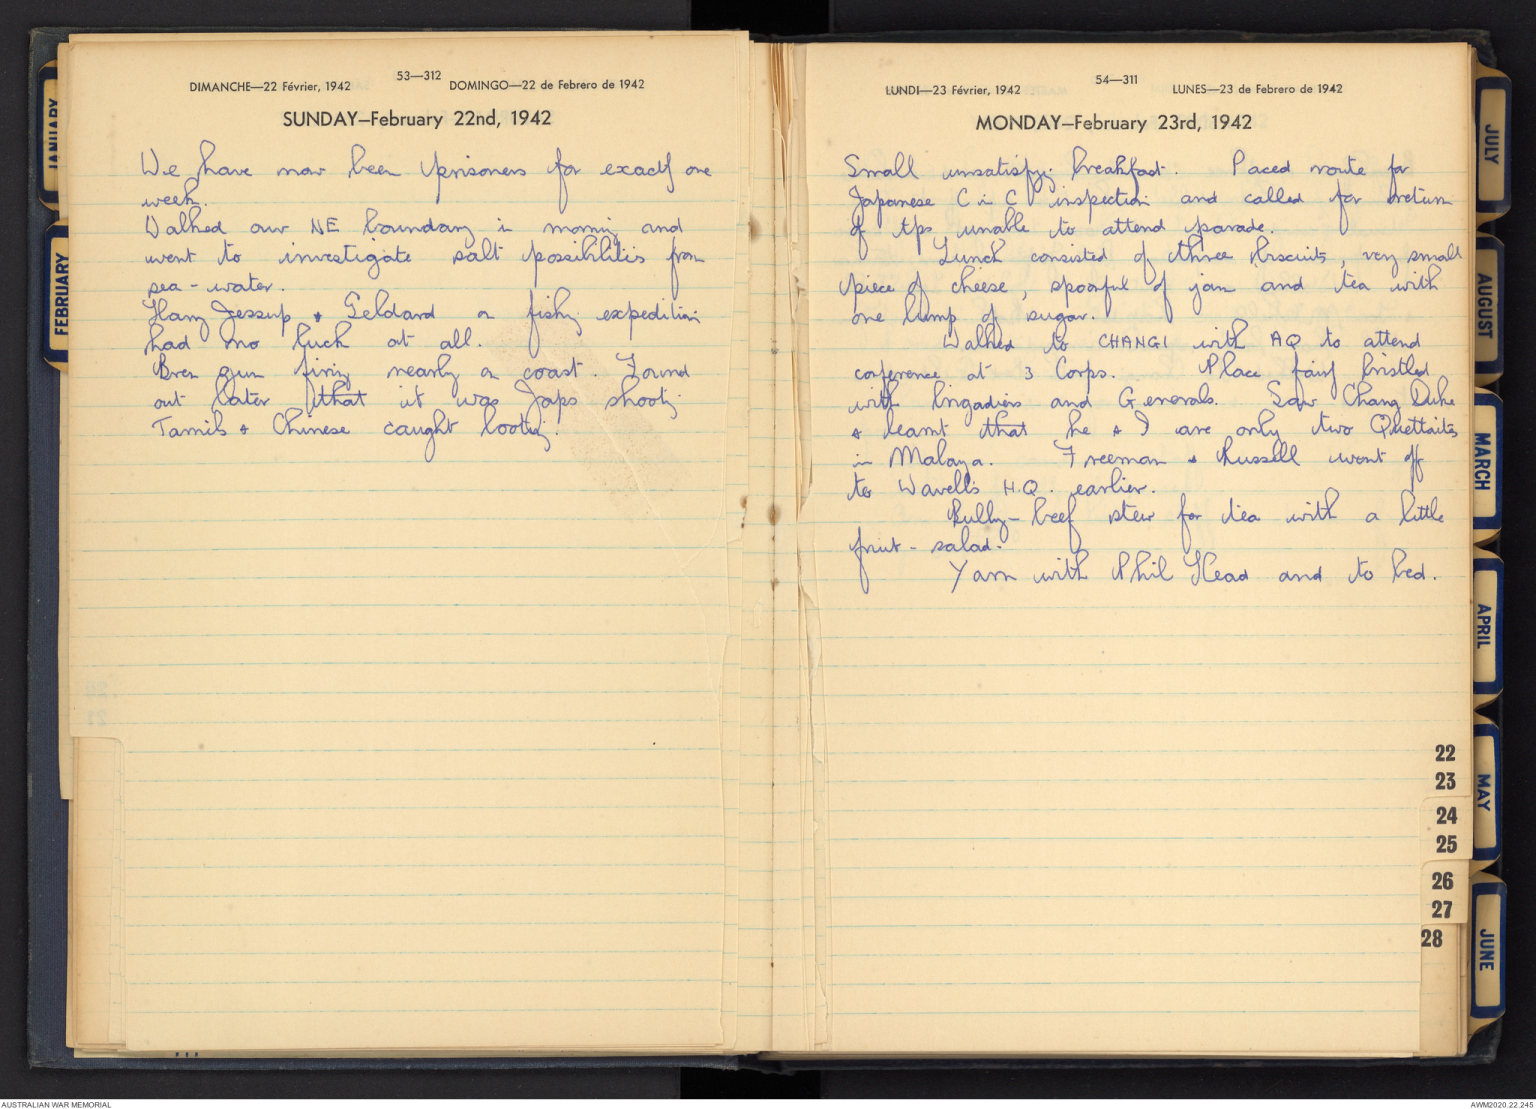 JANUARY
FEBRUARY
53—312
DIMANCHE—22 Février, 1942
DOMINGO—22 de Febrero de 1942
SUNDAY—February 22nd, 1942
We have now been prisoners for exactly one
week.
Walked our NE boundary in morning and
went to investigate salt possibilities from
sea-water.
Harry Jessup & Geldard on fishing expedition
had no luck at all.
Bren gun firing nearly on coast. Found
out later that it was Japs shooting
Tamils & Chinese caught looting.
54—311
LUNDI—23 Février, 1942
LUNES—23 de Febrero de 1942
MONDAY—February 23rd, 1942
Small unsatisfying breakfast. Paced route for
Japanese C in C inspection and called for return
of tps unable to attend parade.
Lunch consisted of three biscuits, very small
piece of cheese, spoonful of jam and tea with
one lump of sugar.
Walked to CHANGI with AQ to attend
conference at 3 Corps. Place fairly bristled
with brigadiers and Generals. Saw Chang Duke
& learnt that he & I are only two Quettaites
in Malaya. Freeman & Russell went off
to Wavell's H.Q. earlier.
Bully-beef stew for tea with a little
fruit-salad.
Yarn with Phil Head and to bed.
22
23
24
25
26
27
28
JULY
AUGUST
MARCH
APRIL
MAY
JUNE
AUSTRALIAN WAR MEMORIAL
AWM2020.22.245